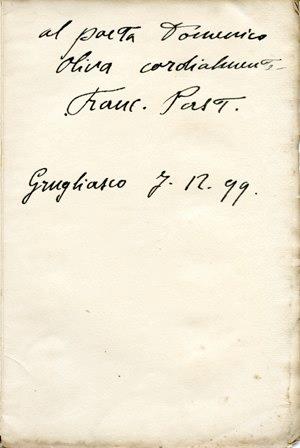 al poeta Domenico
Oliva cordialment
Franc. Past.
Grugliasco 7. 12. 99.